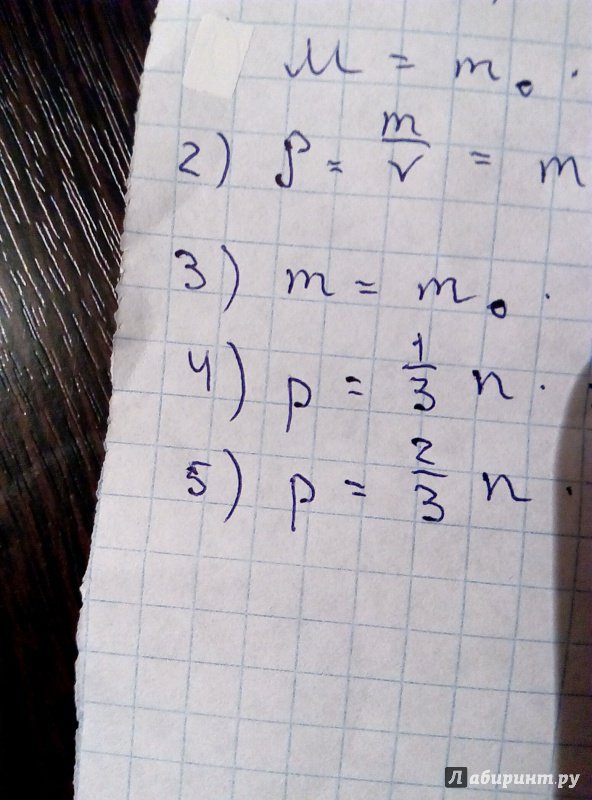 M = m₀ ·
2) ρ = m/v = m
3) m = m₀ ·
4) p = 1/3 n ·
5) p = 2/3 n ·
Лабиринт.ру